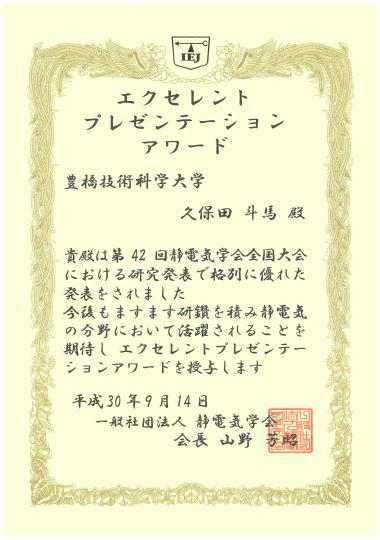 IEJ
エクセレント
プレゼンテーション
アワード
豊橋技術科学大学
久保田 斗馬 殿
貴殿は第 42 回静電気学会全国大会
における研究発表で格別に優れた
発表をされました
今後もますます研鑽を積み静電気
の分野において活躍されることを
期待し エクセレントプレゼンテー
ションアワードを授与します
平成30年9月14日
一般社団法人 静電気学会
会長 山野 芳昭